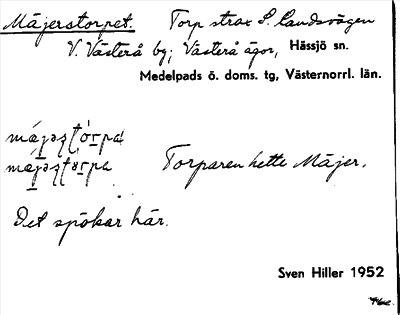 Mäjerstorpet. Torp strax S. landsvägen
V. Västerå by; Västerå ägor, Hässjö sn.
Medelpads ö. doms. tg, Västernorrl. län.
Torparen hette Mäjer.
Det spökar här.
Sven Hiller 1952